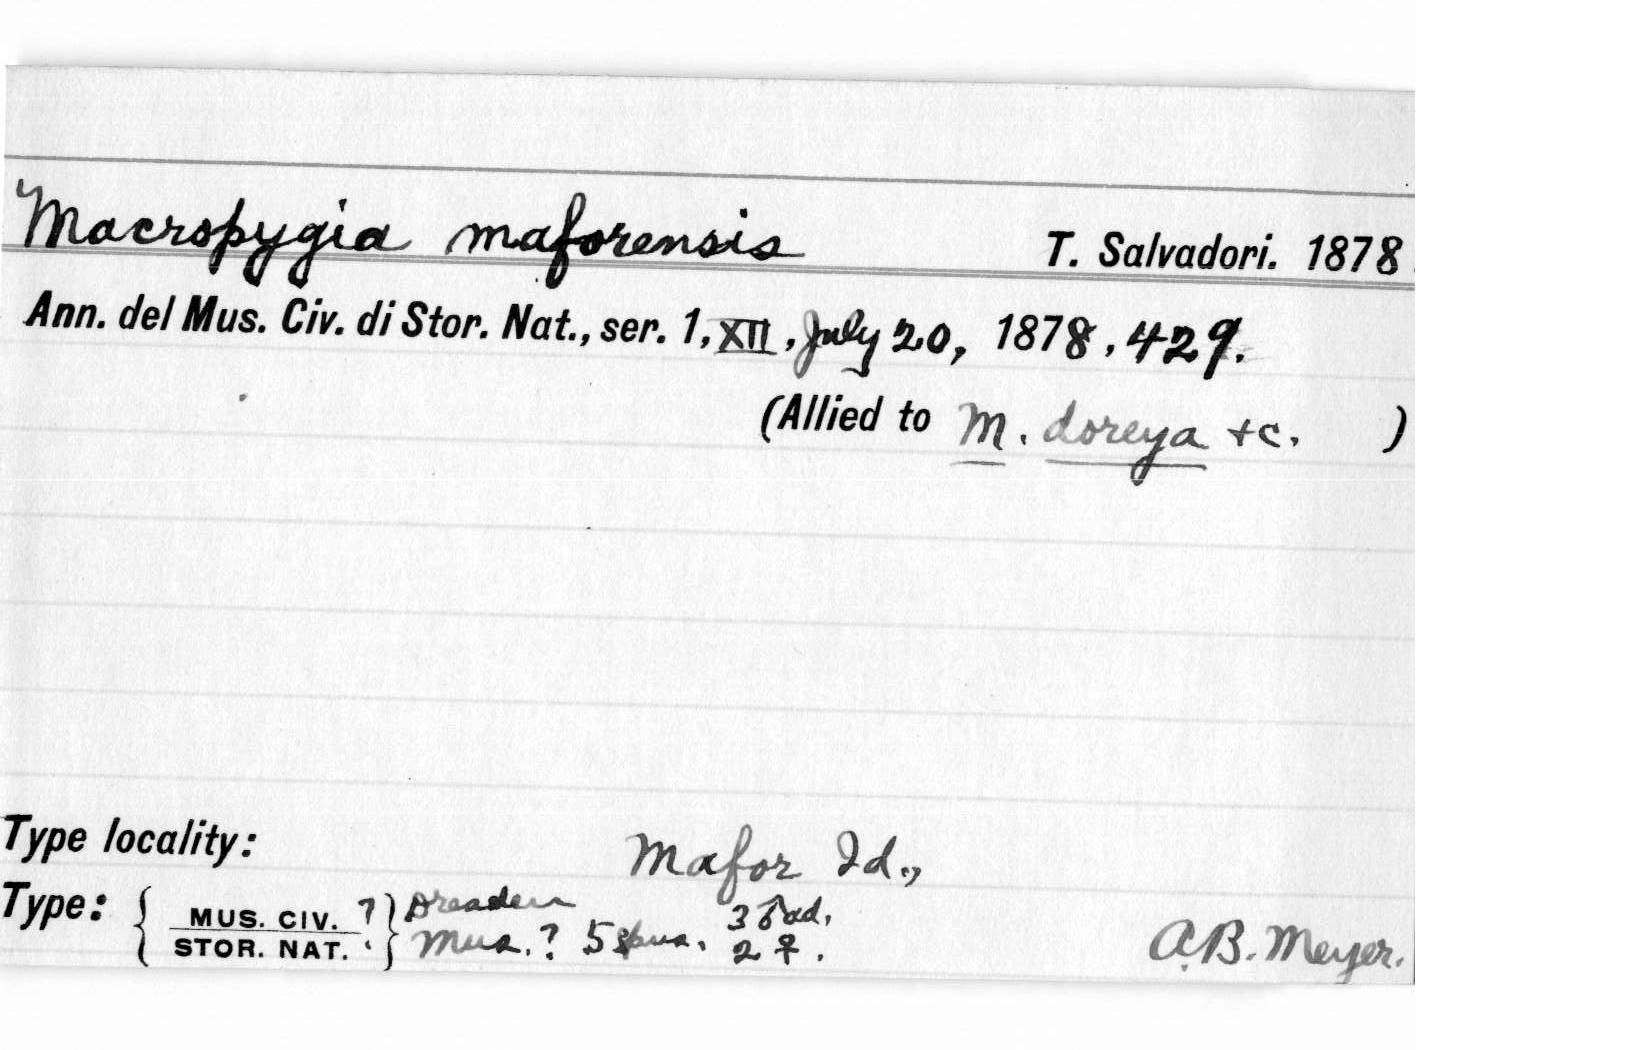 Macropygia maforensis T. Salvadori. 1878
Ann. del Mus. Civ. di Stor. Nat., ser. 1, XII, July 20, 1878, 429.
(Allied to M. doreya +c. )
Type locality: Mafor Id.,
Type: { MUS. CIV. ? } Dresden 3 ♂ ad.
STOR. NAT. Mus. ? 5 spns. 2 ♀. A.B. Meyer.